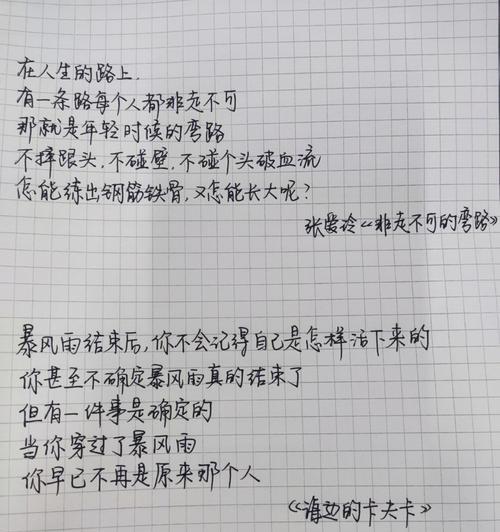 在人生的路上.
有一条路每个人都非走不可
那就是年轻时候的弯路
不摔跟头,不碰壁,不碰个头破血流
怎能练出钢筋铁骨,又怎能长大呢?
张爱冷《非走不可的弯路》
暴风雨结束后,你不会记得自己是怎样活下来的
你甚至不确定暴风雨真的结束了
但有一件事是确定的
当你穿过了暴风雨
你早已不再是原来那个人
《海边的卡夫卡》